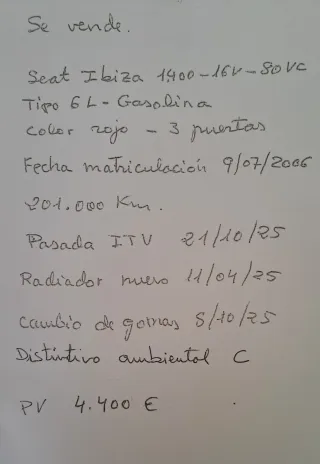 Se vende.
Seat Ibiza 1400-16V-80VC
Tipo 6L-Gasolina
Color rojo - 3 puertas
Fecha matriculación 9/07/2006
201.000 Km.
Pasada ITV 21/10/25
Radiador nuevo 11/04/25
Cambio de gomas 8/10/25
Distintivo ambiental C
PV 4.400 €